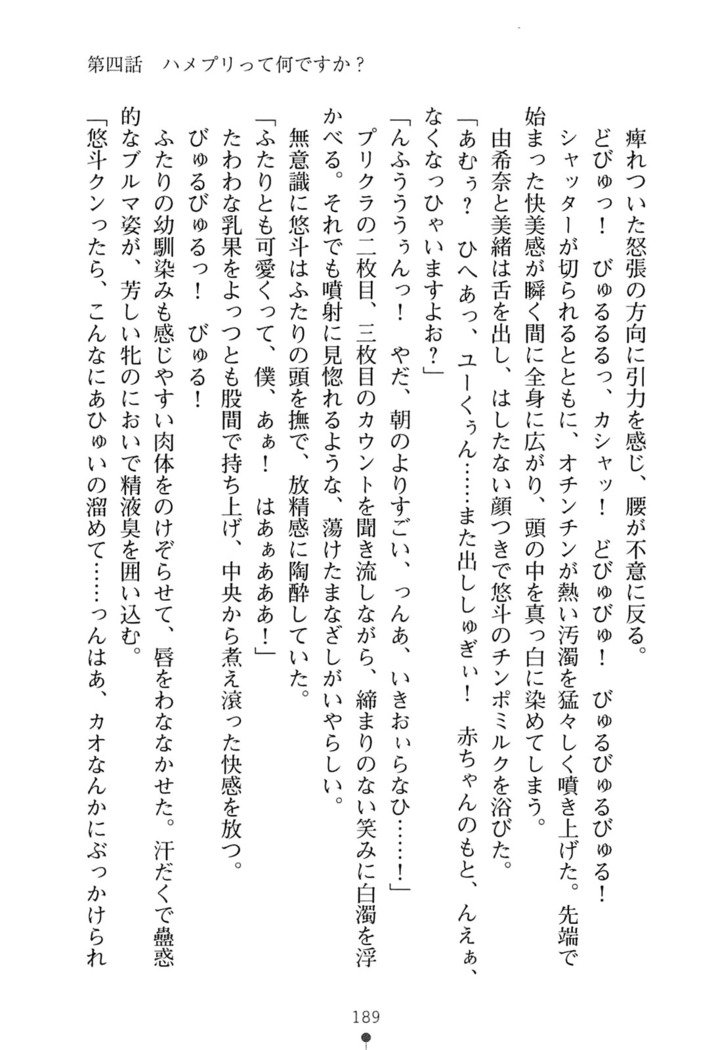 第四話　ハメプリって何ですか？
痺れついた怒張の方向に引力を感じ、腰が不意に反る。
どびゅっ！　びゅるるるっ、カシャッ！　どびゅびゅ！　びゅるびゅるびゅる！
シャッターが切られるとともに、オチンチンが熱い汚濁を猛々しく噴き上げた。先端で
始まった快美感が瞬く間に全身に広がり、頭の中を真っ白に染めてしまう。
由希奈と美緒は舌を出し、はしたない顔つきで悠斗のチンポミルクを浴びた。
「あむぅ？　ひへあっ、ユーくぅん……また出ししゅぎぃ！　赤ちゃんのもと、んえぁ、
なくなっひゃいますよお？」
「んふうううぅんっ！　やだ、朝のよりすごい、っんあ、いきおぃらなひ……！」
プリクラの二枚目、三枚目のカウントを聞き流しながら、締まりのない笑みに白濁を浮
かべる。それでも噴射に見惚れるような、蕩けたまなざしがいやらしい。
無意識に悠斗はふたりの頭を撫で、放精感に陶酔していた。
「ふたりとも可愛くって、僕、あぁ！　はあぁあああ！」
たわわな乳果をよっつとも股間で持ち上げ、中央から煮え滾った快感を放つ。
びゅるびゅるっ！　びゅる！
ふたりの幼馴染みも感じやすい肉体をのけぞらせて、唇をわななかせた。汗だくで蠱惑
的なブルマ姿が、芳しい牝のにおいで精液臭を囲い込む。
「悠斗クンったら、こんなにあひゅいの溜めて……っんはぁ、カオなんかにぶっかけられ
189